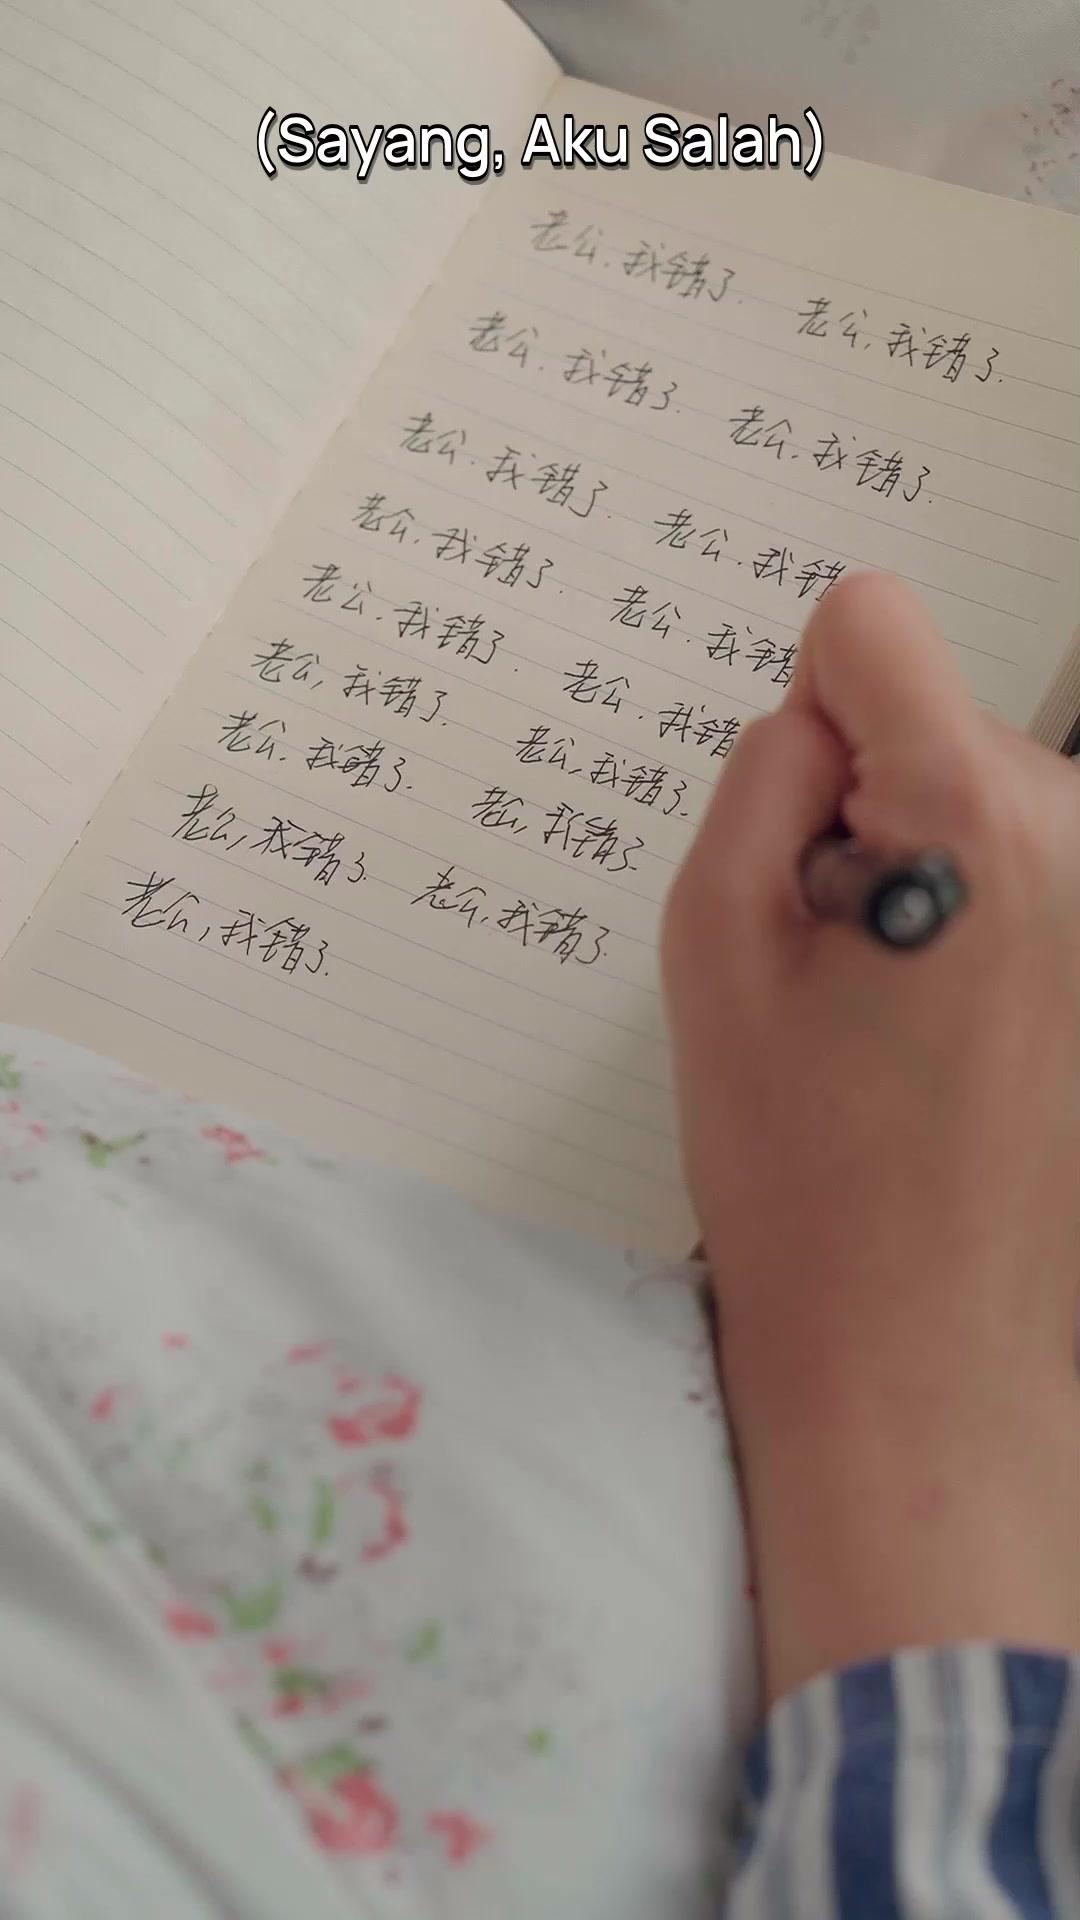 (Sayang, Aku Salah)
老公.我错了. 老公,我错了.
老公.我错了. 老公.我错了.
老公.我错了. 老公.我错
老公.我错了. 老公.我错
老公.我错了. 老公.我错
老公,我错了. 老公,我错了.
老公.我错了. 老公,我错了.
老公,我错了. 老公,我错了.
老公,我错了.